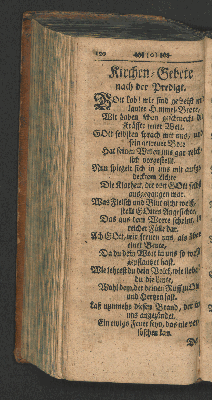 120
Kirchen-Gebete
nach der Predigt.
GOtt Lob! wir sind gespeißt mit
lauter Himmel-Brote,
Wir haben eben geschmeckt die
Kräffte jener Welt.
GOtt selbsten sprach mit uns, und
sein getreuer Bote
Hat seinen Willen uns gar reich-
lich vorgestellt.
Nun spiegelt sich in uns mit aufge-
decktem Lichte
Die Klarheit, der von GOtt selbst
ausgegangen war.
Was Fleisch und Blut nicht weiß,
stellt GOttes Angesichte,
Das aus dem Worte scheint, in
reicher Fülle dar.
Ach GOtt, wir freuen uns, als über
einer Beute,
Da du dein Wort in uns so
gepflantzet hast.
Wie lehrest du dein Volck, wie liebest
du die Leute,
Wohl dem, der deinen Ruff zu
und Hertzen fast.
Laß nunmehr diesen Brand, der in
uns angezündet,
Ein ewigs Feuer seyn, das nie ver-
löschen kan.